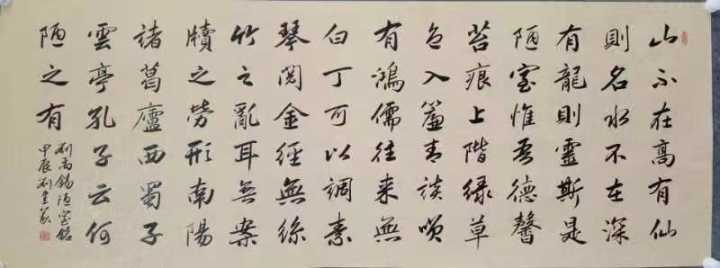 山不在高有仙
則名水不在深
有龍則靈斯是
陋室惟吾德馨
苔痕上階緑草
色入簾青談咲
有鴻儒往来無
白丁可以調素
琴閲金經無絲
竹之亂耳無案
牘之勞形南陽
諸葛廬西蜀子
雲亭孔子云何
陋之有
劉禹錫陋室銘
甲辰劉